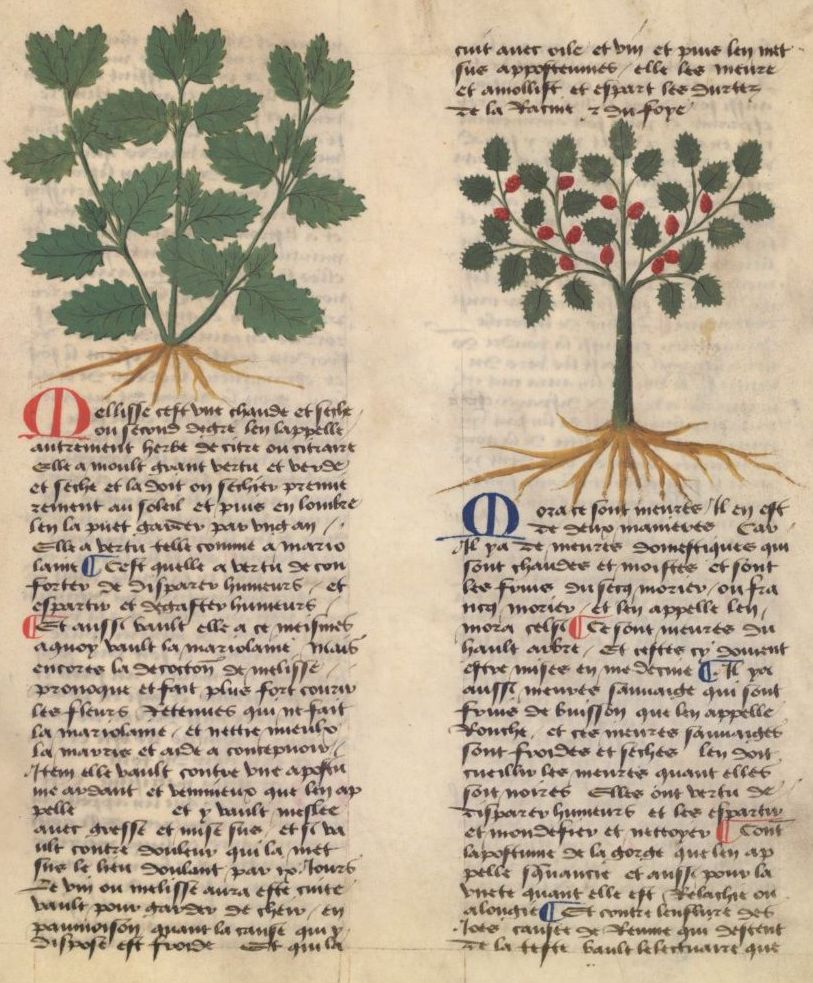 Mellisse cest une chaude et seche
ou second degre len lappelle
autrement herbe de citre ou citraire
Elle a moult grant vertu et verde
et seche et la doit on sechier premie
rement au soleil et puis en lombre
len la puet garder par ung an
Elle a vertu telle comme a mario
laine Cest quelle a vertu de con
forter de disparer humeurs et
espartir et degaster humeurs
Et aussi vault elle a ce meismes
a quoy vault la mariolaine mais
encores la decoction de melisse
provoque et fait plus fort courir
les fleurs retenues qui ne fait
la mariolaine et nettie mieulx
la marris et aide a concepvoir
Item elle vault contre une apostu
me ardant et venimeux que len ap
pelle et y vault meslee
avec gresse et mise sus et si va
ult contre douleur qui la met
sus le lieu doulant par ix Jours
Le vin ou melisse aura este cuite
vault pour garder de cheir en
pasmoison quant la cause qui y
dispose est froide Et qui la
cuit avec oile et vin et puis len met
sus apposteumes elle les meure
et amollist et espart les durtez
de la Racine et du foye
Mora ce sont meures Il en est
de deux manieres Car
Il ya de meures domestiques qui
sont chaudes et moistes et sont
les fruis du secq morier ou fra
ncq morier et len appelle len
mora celsi Ce sont meures du
hault arbre Et cestes cy doivent
estre mises en medecine Il ya
aussi meures sauvaige qui sont
fruis de buisson que len appelle
Ronche et ces meures sauvaiges
sont froides et seches len doit
cueillir les meures quant elles
soit noires Elles ont vertu de
disparer humeurs et les espartir
et mondefier et nettoyer Cont
lapostume de la gorge que len ap
pelle squancie et aussi pour la
uvete quant elle est Relachie ou
alongie Et contre lenflure des
Joes causee de Reume qui descent
de la teste vault lelectuaire que